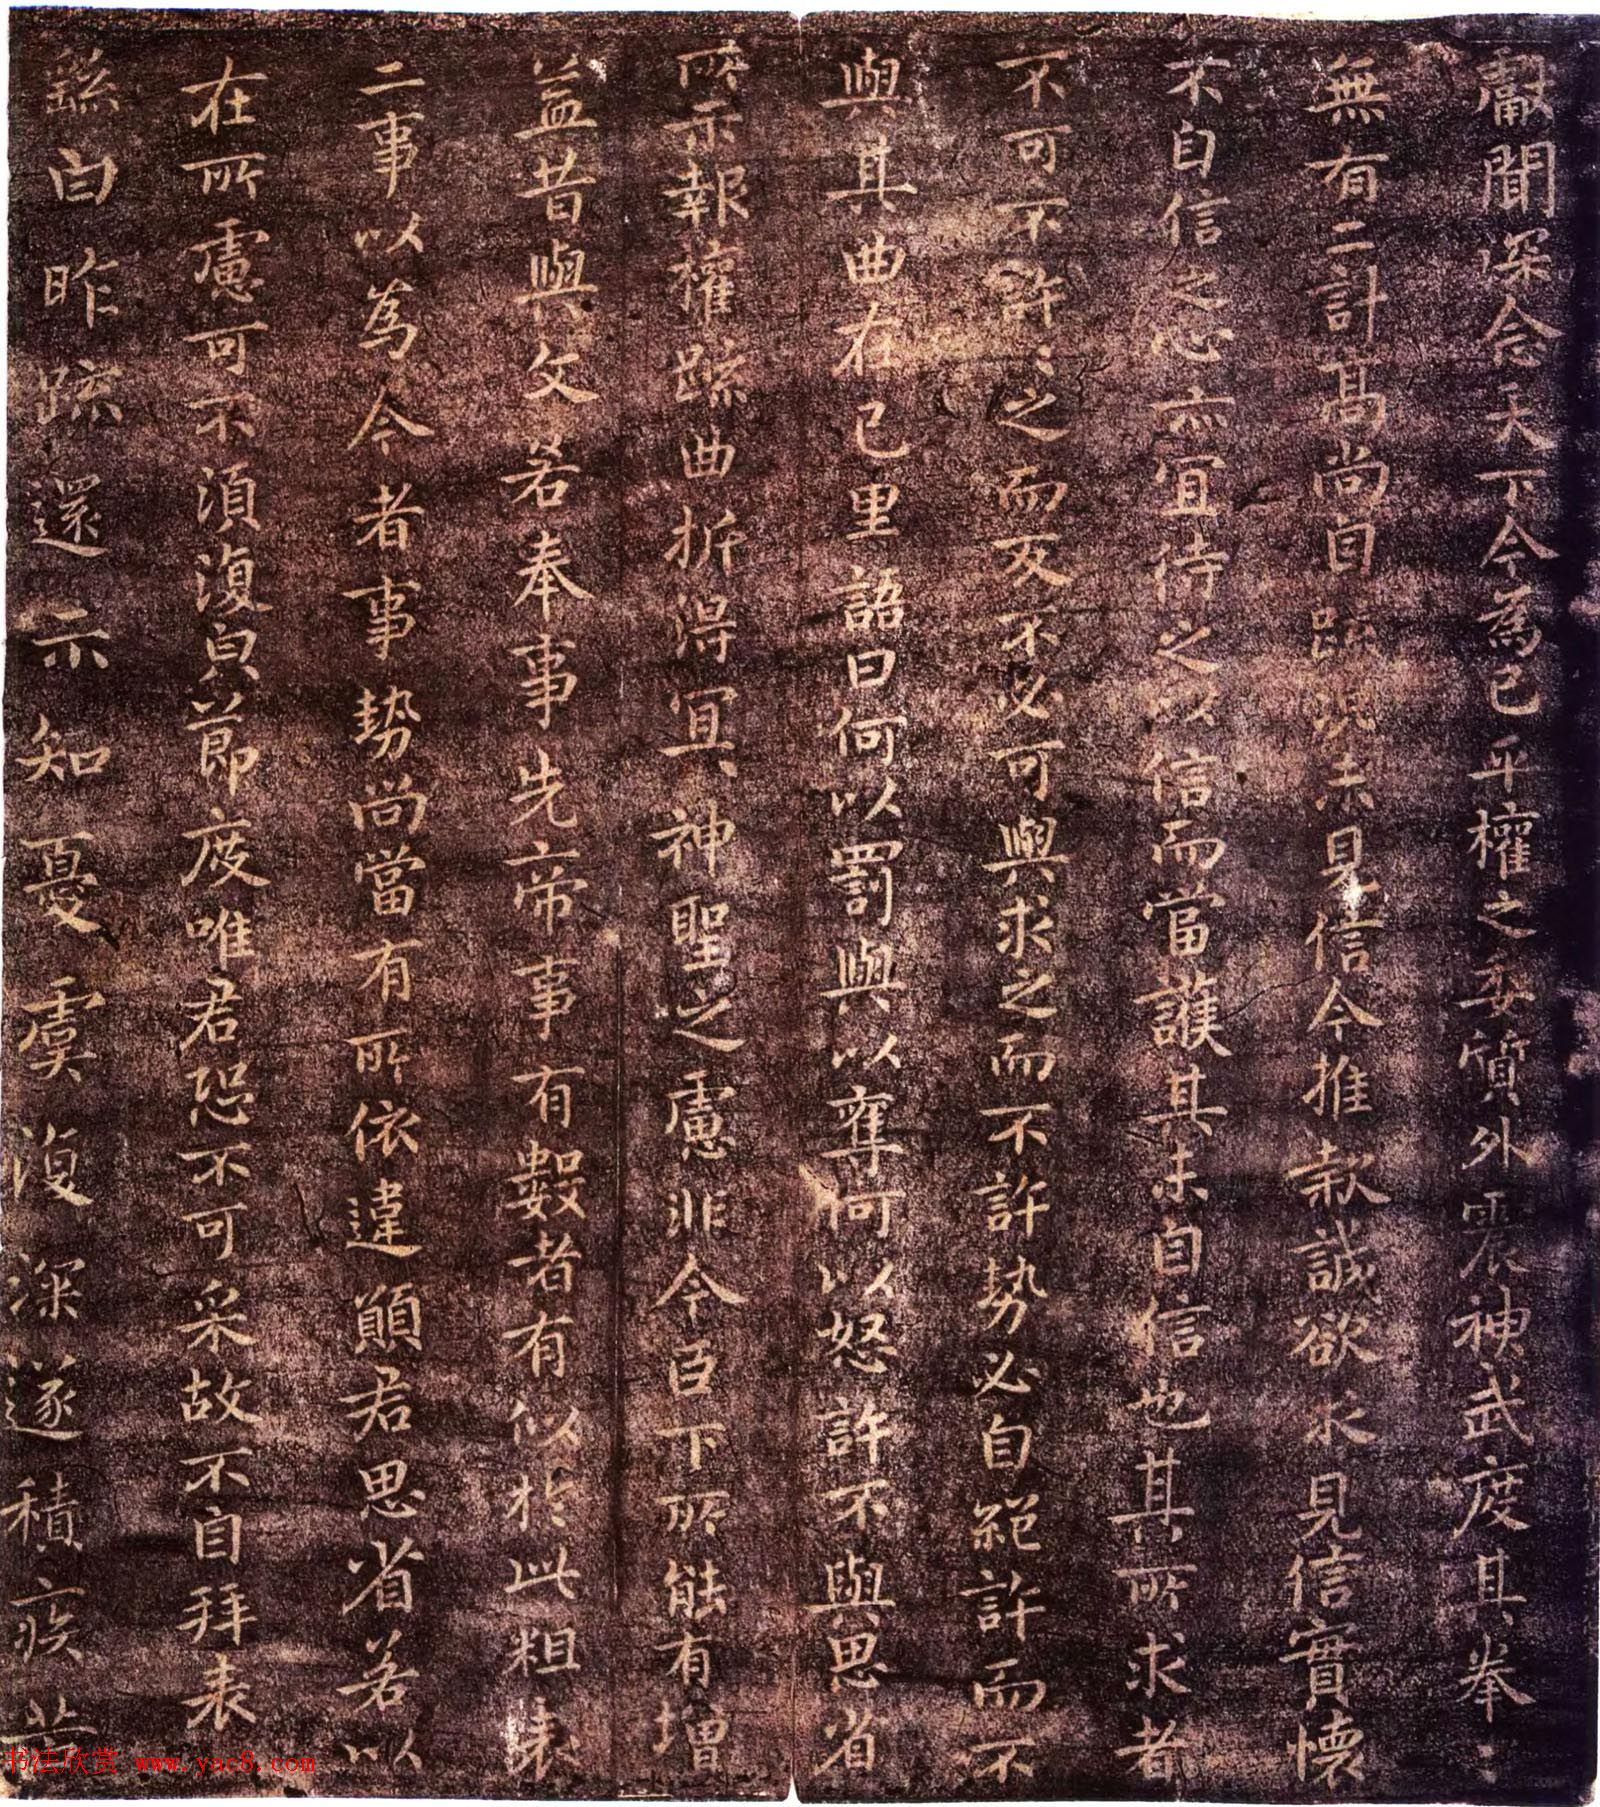 獻聞深念天下今爲已平權之委質外震神武度其拳〻
無有二計高尚自踈況未見信今推款誠欲求見信實懷
不自信之心亦宜待之以信而當護其未自信也其所求者
不可不許〻之而反不必可與求之而不許勢必自絕許而不
與其曲在己里語曰何以罰與以奪何以怒許不與思省
所示報權踈曲折得宜神聖之慮非今臣下所能有增
益昔與文若奉事先帝事有數者有似於此粗表
二事以爲今者事勢尚當有所依違願君思省若以
在所慮可不須復貟節度唯君恐不可采故不自拜表
繇白昨踈還示知憂虞復深遂積疾苦
书法欣赏 www.yac8.com